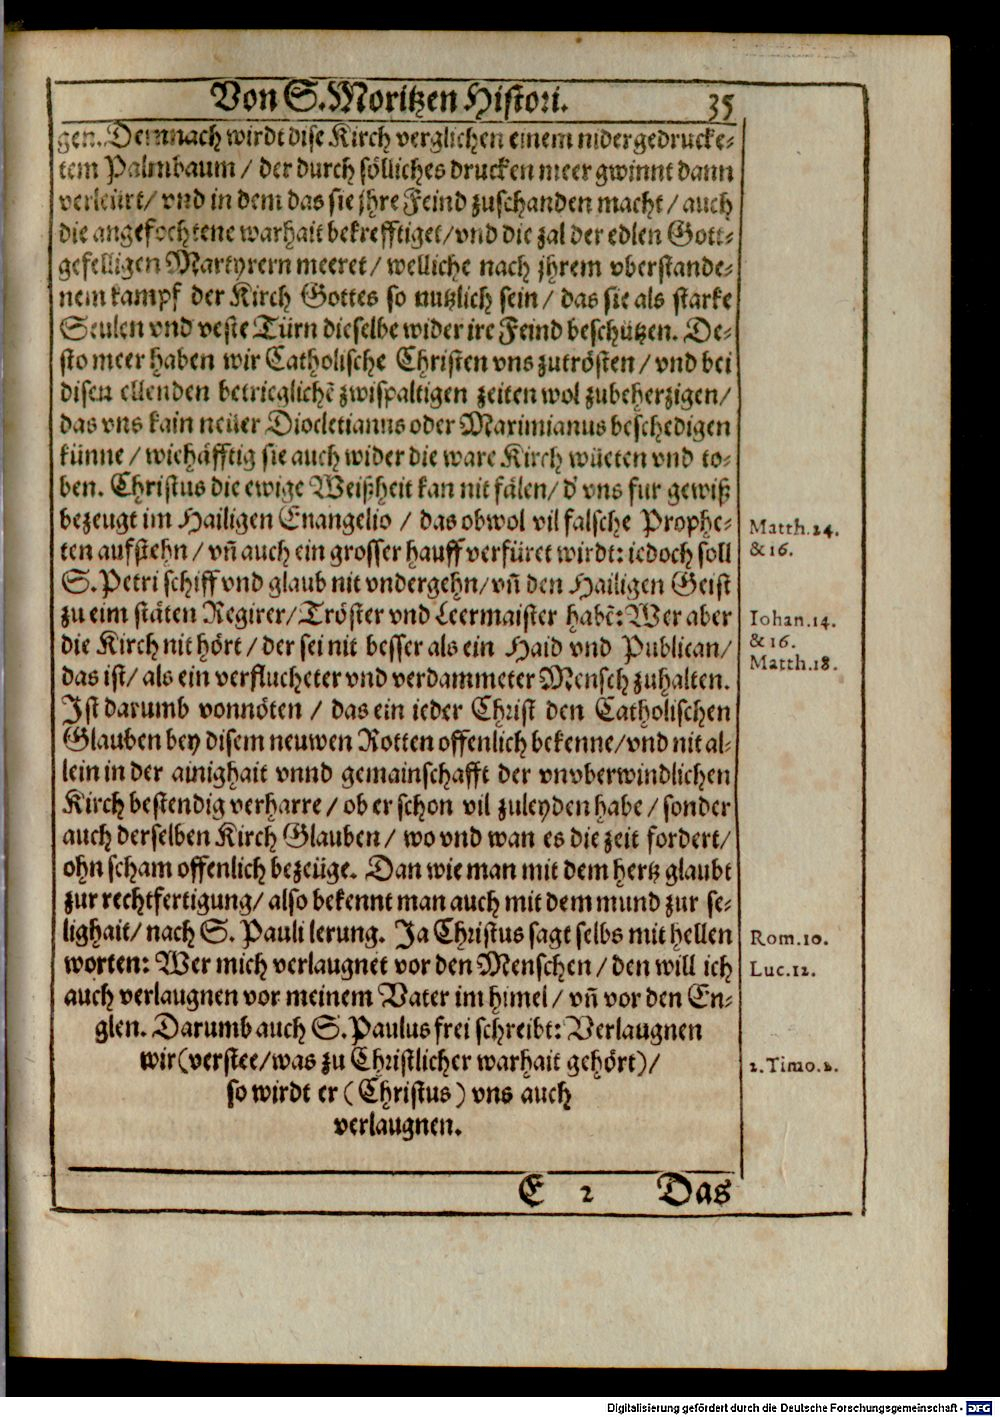 Von S. Moritzen Histori. 35
gen. Demnach wirdt dise Kirch verglichen einem nidergedrucke-
tem Palmbaum / der durch sölliches drucken meer gwinnt dann
verleürt / vnd in dem das sie jhre Feind zuschanden macht / auch
die angefochtene warhait bekrefftiget / vnd die zal der edlen Gott-
gefelligen Martyrern meeret / welliche nach jhrem vberstande-
nem kampf der Kirch Gottes so nutzlich sein / das sie als starke
Seulen vnd veste Türn dieselbe wider ire Feind beschützen. De-
sto meer haben wir Catholische Christen vns zutrösten / vnd bei
disen ellenden betrieglichē zwispaltigen zeiten wol zubeherzigen /
das vns kain neüer Diocletianus oder Maximianus beschedigen
künne / wiehäfftig sie auch wider die ware Kirch wüeten vnd to-
ben. Christus die ewige Weißheit kan nit fälen / d' vns fur gewiß
bezeugt im Hailigen Euangelio / das obwol vil falsche Prophe-
Matth.24.
ten aufstehn / vñ auch ein grosser hauff verfüret wirdt: iedoch soll
&16.
S. Petri schiff vnd glaub nit vndergehn / vñ den Hailigen Geist
zu eim stäten Regirer / Tröster vnd Leermaister habē: Wer aber
Iohan.14.
die Kirch nit hört / der sei nit besser als ein Haid vnd Publican /
&16.
Matth.18.
das ist / als ein verflucheter vnd verdammeter Mensch zuhalten.
Ist darumb vonnöten / das ein ieder Christ den Catholischen
Glauben bey disem neuwen Rotten offenlich bekenne / vnd nit al-
lein in der ainighait vnnd gemainschafft der vnvberwindlichen
Kirch bestendig verharre / ob er schon vil zuleyden habe / sonder
auch derselben Kirch Glauben / wo vnd wan es die zeit fordert /
ohn scham offenlich bezeüge. Dan wie man mit dem hertz glaubt
zur rechtfertigung / also bekennt man auch mit dem mund zur se-
lighait / nach S. Pauli lerung. Ja Christus sagt selbs mit hellen
Rom.10.
worten: Wer mich verlaugnet vor den Menschen / den will ich
Luc.12.
auch verlaugnen vor meinem Vater im himel / vñ vor den En-
glen. Darumb auch S. Paulus frei schreibt: Verlaugnen
wir (verstee / was zu Christlicher warhait gehört) /
2.Timo.2.
so wirdt er (Christus) vns auch
verlaugnen.
E 2 Das
Digitalisierung gefördert durch die Deutsche Forschungsgemeinschaft - DFG